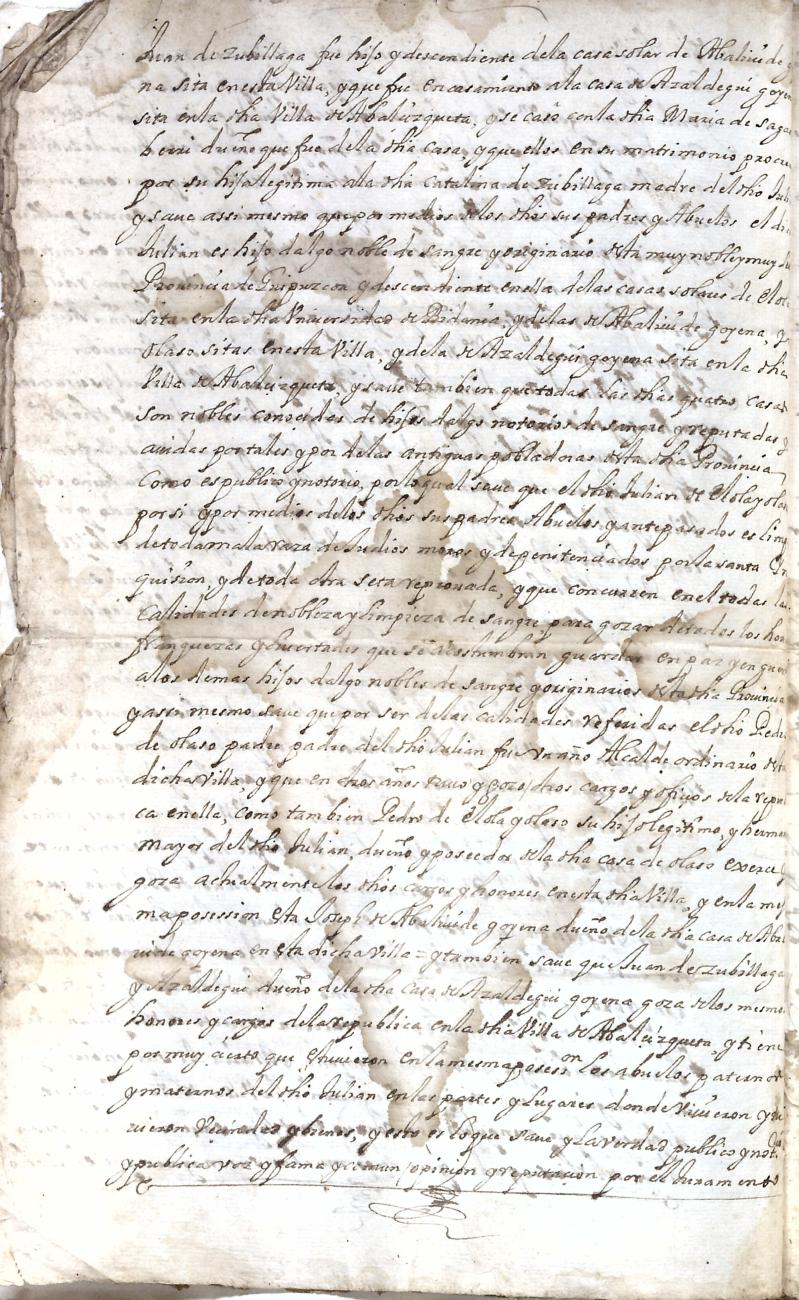 Juan de Zubillaga fue hijo y descendiente dela casa solar de Abaliui de
na sita en esta Villa, y que fue en casamiento ala casa de Azaldegui goyen
sita en la dha Villa de Abalizqueta, y se caso con la dha Maria de Saga
berri dueño que fue dela dha casa, y que ellos en su matrimonio procr
por su hija legitima ala dha Catalina de Zubillaga madre del dho Juli
y saue assi mesmo que por medios de los dhos sus padres y Abuelos el di
Julian es hijo dalgo noble de sangre y originario desta muy noble y muy
Prouincia de Guipuzcoa y descendiente en ella de las casas solares de Elola
sita en la dha Vniuersidad de Bidania, y de las de Abaliui de goyena, y
Olaso sitas en esta Villa, y dela de Azaldegui goyena sita en la dha
Villa de Abalizqueta, y saue tambien que todas las dhas quatro casas
son nobles conocidas de hijos dalgo notorios de sangre y reputadas y
auidas por tales y por delas antiguas pobladoras desta dha Prouincia
Como es publico y notorio, por lo qual saue que el dho Julian de Elola y olas
por si y por medios delos dhos sus padres Abuelos y antepasados es limp
de toda mala raza de Judios moros y de penitenciados por la santa In
quisicion, y de toda otra seta reprouada, y que concurren en el todas las
Calidades de nobleza y limpieza de sangre para gozar de todos los hon
franquezas y liuertades que se acostumbran guardar en paz y en guer
a los demas hijos dalgo nobles de sangre y originarios desta dha Prouincia
y assi mesmo saue que por ser delas calidades referidas el dho Pedro
de olaso padre padre del dho Julian fue vn año Alcalde ordinario desta
dicha Villa, y que en otros años tuuo y gozo otros cargos y oficios dela repu
ca en ella, como tambien Pedro de Elola y olaso su hijo legitimo, y herman
mayor del dho Julian, dueño y poseedor dela dha casa de olaso exerce
goza actualmente los dhos cargos y honores en esta dha Villa, y en la mes
ma posession esta Joseph de Abaliui de goyena dueño dela dha casa de Abal
iui de goyena en esta dicha Villa = y tambien saue que Juan de Zubillaga
y Azaldegui dueño dela dha Casa de Azaldegui goyena goza delos mesmos
honores y cargos dela republica en la dha Villa de Abalizqueta, y tiene
por muy cierto que estuuieron en la mesma posesion los abuelos paternos
y maternos del dho Julian en las partes y lugares donde viuieron y tu
uieron vecindad y bienes, y esto es lo que saue y la verdad publico y noto
y publica voz y fama y comun opinion y reputacion por el Juramento